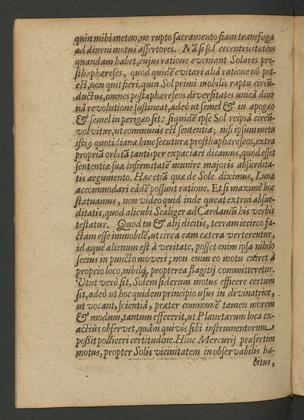 quin mihi metuo, ne rupto sacramento siam transfuga
ad diurni motus assertores. Nã si sol eccentricitatem
quandam habet, cujus ratione eveniant Solares pro-
sthaphæreses, quod quidē evitari aliâ ratione nō pot-
est, non quit fieri, quin Sol primi mobilis raptu circũ-
ductus, omnes posthaphæreseos diversitates unicâ diur-
nâ revolutione sustineat, adeò ut semel & in apogæo
& semel in perigæo sit: siquidē ipse Sol reipsâ circũ-
volvitur, ut communis est sententia; nisi ipsum motu
isto quotidiano hinc secuturæ prosthaphæreseos, extra
propriâ orbitâ tanto per expaciari dicamus, quod esset
sententiæ suæ infirmitatē munire majoris absurdita-
tis argumento. Hæc etiâ quæ de Sole diximus, Lunæ
accommodari eâdē possunt ratione. Et si maximè hoc
statuamus, non video quid inde queat extrui absur-
ditatis, quod alicubi Scaliger ad Cardanũ his verbis
testatur. Quod tu & alij dicitis, terram iccirco fa-
ctam esse immobilē, ut circa eam cætera verterentur,
id æque alienum est à veritate, posset enim ipsa nihilo
secius in puncto moveri; non enim eo motu exiret à
proprio loco, nihilq́; propterea flagitij committeretur.
Utut verò sit, Solem siderum motus efficere certum
sit, adeò ut hoc quidem principio usus in divinatrice,
ut vocant, scientiâ, præter communē tamen morem
& modum, tantum effecerit, ut Planetarum loca ex-
actiùs observet, quàm quivis sibi instrumentorum
possit polliceri certitudine. Hinc Mercurij præsertim
motus, propter Solis vicinitatem in observabilis ha-
bitus,